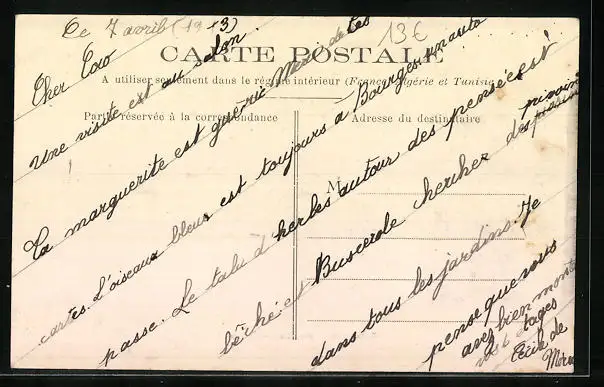 Ce 7 avril (1913)
13€
CARTE POSTALE
A utiliser seulement dans le régime intérieur (France, Algérie et Tunisie
Partie réservée à la correspondance
Adresse du destinataire
M
Cher
une visite est au salon.
La marguerite est guérie des
cartes. L'oiseau bleu est toujours à Bourges un auto
passe. Le talu d'herbes autour des pensée est
bêché et Buscerole chercher des
dans tous les jardins. Je
pense que vous
avez bien monté
vos 6 étages
Cécile de